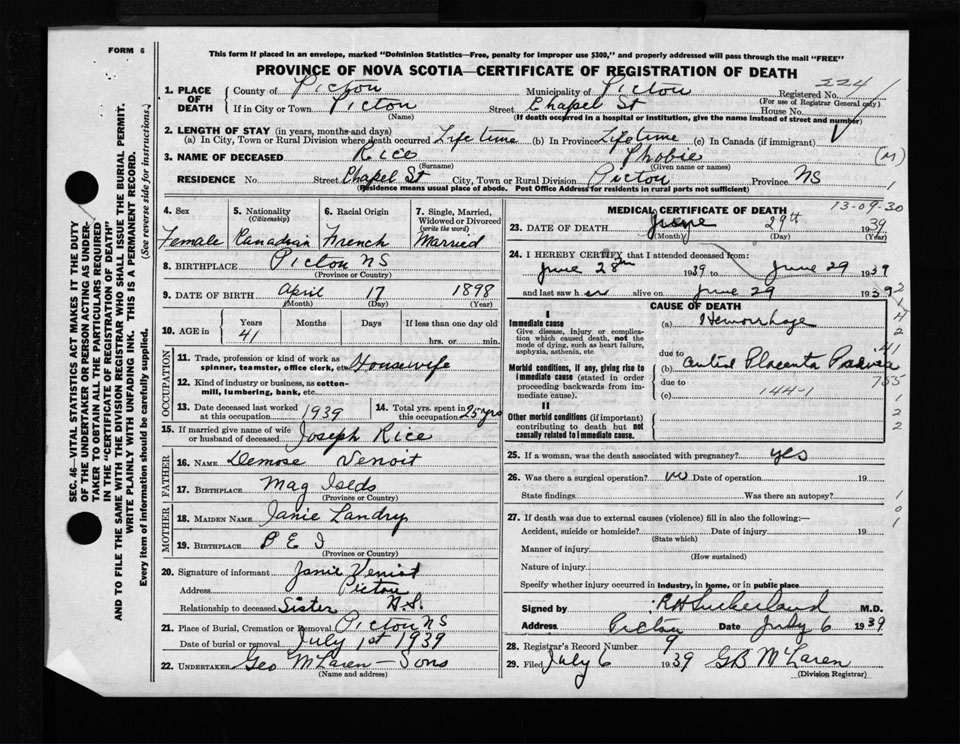 FORM 6
This form if placed in an envelope, marked "Dominion Statistics—Free, penalty for improper use $300," and properly addressed will pass through the mail "FREE"
PROVINCE OF NOVA SCOTIA—CERTIFICATE OF REGISTRATION OF DEATH
SEC. 46—VITAL STATISTICS ACT MAKES IT THE DUTY
OF THE UNDERTAKER OR PERSON ACTING AS UNDER-
TAKER TO OBTAIN ALL THE PARTICULARS REQUIRED
IN THE "CERTIFICATE OF REGISTRATION OF DEATH"
AND TO FILE THE SAME WITH THE DIVISION REGISTRAR WHO SHALL ISSUE THE BURIAL PERMIT.
WRITE PLAINLY WITH UNFADING INK. THIS IS A PERMANENT RECORD.
Every item of information should be carefully supplied. (See reverse side for instructions.)
1. PLACE OF DEATH County of Pictou Municipality of Pictou Registered No. 224
(For use of Registrar General only)
If in City or Town Pictou Street Chapel St House No.
(Name) (If death occurred in a hospital or institution, give the name instead of street and number)
2. LENGTH OF STAY (in years, months and days)
(a) In City, Town or Rural Division where death occurred Life time (b) In Province Life time (c) In Canada (if immigrant)
3. NAME OF DECEASED Rice Phobie (M)
(Surname) (Given name or names)
RESIDENCE No. Street Chapel St City, Town or Rural Division Pictou Province NS 1
(Residence means usual place of abode. Post Office Address for residents in rural parts not sufficient)
4. Sex Female
5. Nationality (Citizenship) Canadian
6. Racial Origin French
7. Single, Married, Widowed or Divorced (write the word) Married
8. BIRTHPLACE Pictou NS
(Province or Country)
9. DATE OF BIRTH April 17 1898
(Month) (Day) (Year)
10. AGE in Years Months Days If less than one day old
41 hrs. or min.
OCCUPATION
11. Trade, profession or kind of work as spinner, teamster, office clerk, etc. Housewife
12. Kind of industry or business, as cotton-mill, lumbering, bank, etc.
13. Date deceased last worked at this occupation 1939
14. Total yrs. spent in this occupation 25 yrs
15. If married give name of wife or husband of deceased Joseph Rice
FATHER
16. NAME Demose Venoit
17. BIRTHPLACE Mag Islds
(Province or Country)
MOTHER
18. MAIDEN NAME Janie Landry
19. BIRTHPLACE P E I
(Province or Country)
20. Signature of informant Janie Veniot
Address Pictou
Relationship to deceased Sister N.S.
21. Place of Burial, Cremation or Removal Pictou NS
Date of burial or removal July 1st 1939
22. UNDERTAKER Geo McLaren - Sons
(Name and address)
MEDICAL CERTIFICATE OF DEATH 13-09-30
23. DATE OF DEATH June 29th 1939
(Month) (Day) (Year)
24. I HEREBY CERTIFY that I attended deceased from:
June 28th 1939 to June 29 1939
and last saw her alive on June 29 1939
CAUSE OF DEATH
I
Immediate cause
Give disease, injury or complication which caused death, not the mode of dying, such as heart failure, asphyxia, asthenia, etc
(a) Hemorrhage
due to
Morbid conditions, if any, giving rise to immediate cause (stated in order proceeding backwards from immediate cause).
(b) Central Placenta Praevia
due to
(c) 144-1
II
Other morbid conditions (if important) contributing to death but not causally related to immediate cause.
25. If a woman, was the death associated with pregnancy? yes
26. Was there a surgical operation? no Date of operation 19
State findings Was there an autopsy?
27. If death was due to external causes (violence) fill in also the following:—
Accident, suicide or homicide? Date of injury 19
(State which)
Manner of injury
(How sustained)
Nature of injury
Specify whether injury occurred in industry, in home, or in public place
Signed by R H Sutherland M.D.
Address Pictou Date July 6 1939
28. Registrar's Record Number 9
29. Filed July 6 1939 GB McLaren
(Division Registrar)